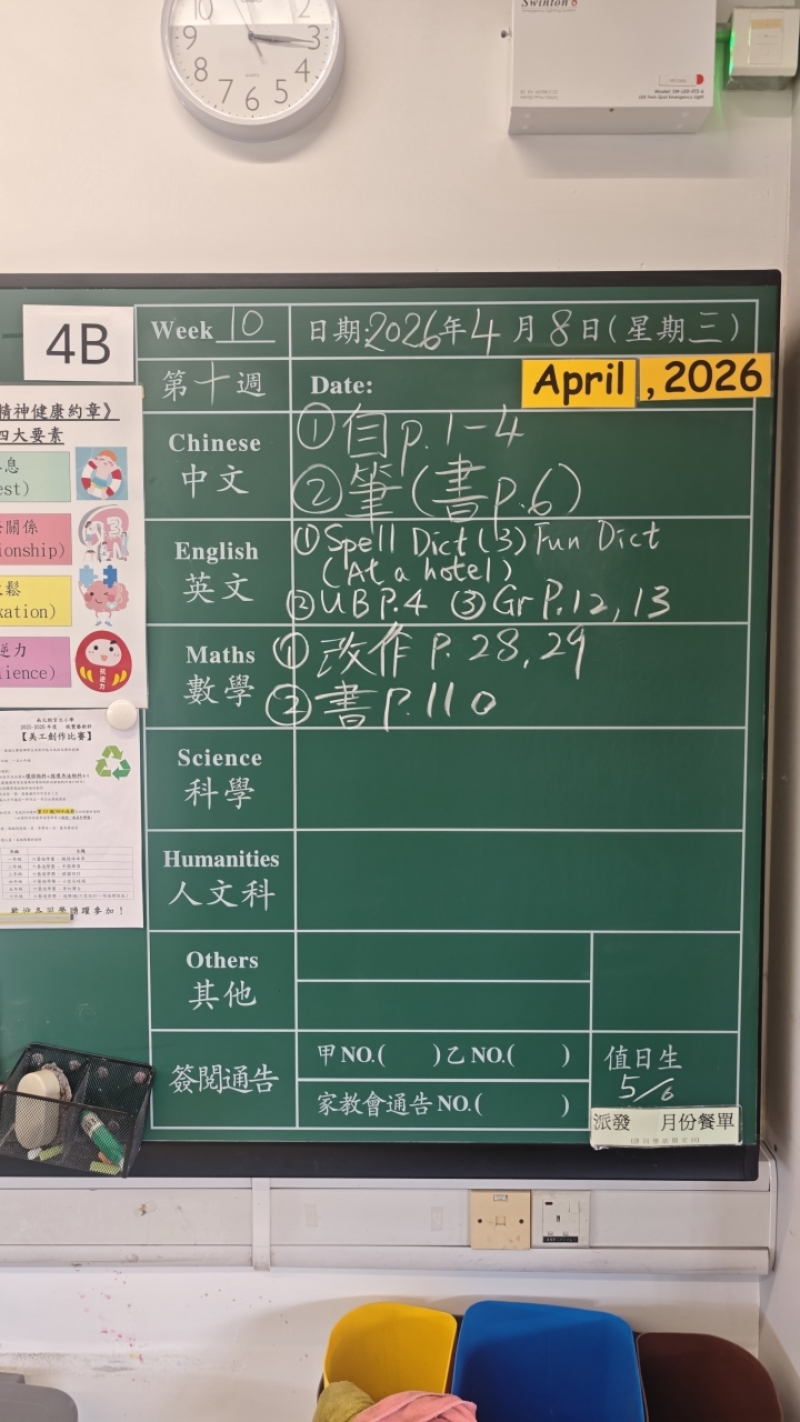 10
9
3
8
4
7
6
5
QUARTZ
Swinton
Emergency Lighting System
Model: SW-LED-2TS-6
LED Twin Spot Emergency Light
4B
Week 10
日期:2026年4月8日(星期三)
第十週
Date:
April , 2026
Chinese
中文
①自p.1-4
②筆(書p.6)
English
英文
①Spell Dict(3) Fun Dict
(At a hotel)
②UBP.4 ③Gr P.12,13
Maths
數學
①改作 P.28,29
②書P.110
Science
科學
Humanities
人文科
Others
其他
簽閱通告
甲NO.( )乙NO.( )
家教會通告NO.( )
值日生
5/6
派發 月份餐單
精神健康約章》
四大要素
息
est)
關係
ionship)
鬆
xation)
逆力
ience)
抗逆力
【美工創作比賽】
歡迎各同學踴躍參加!